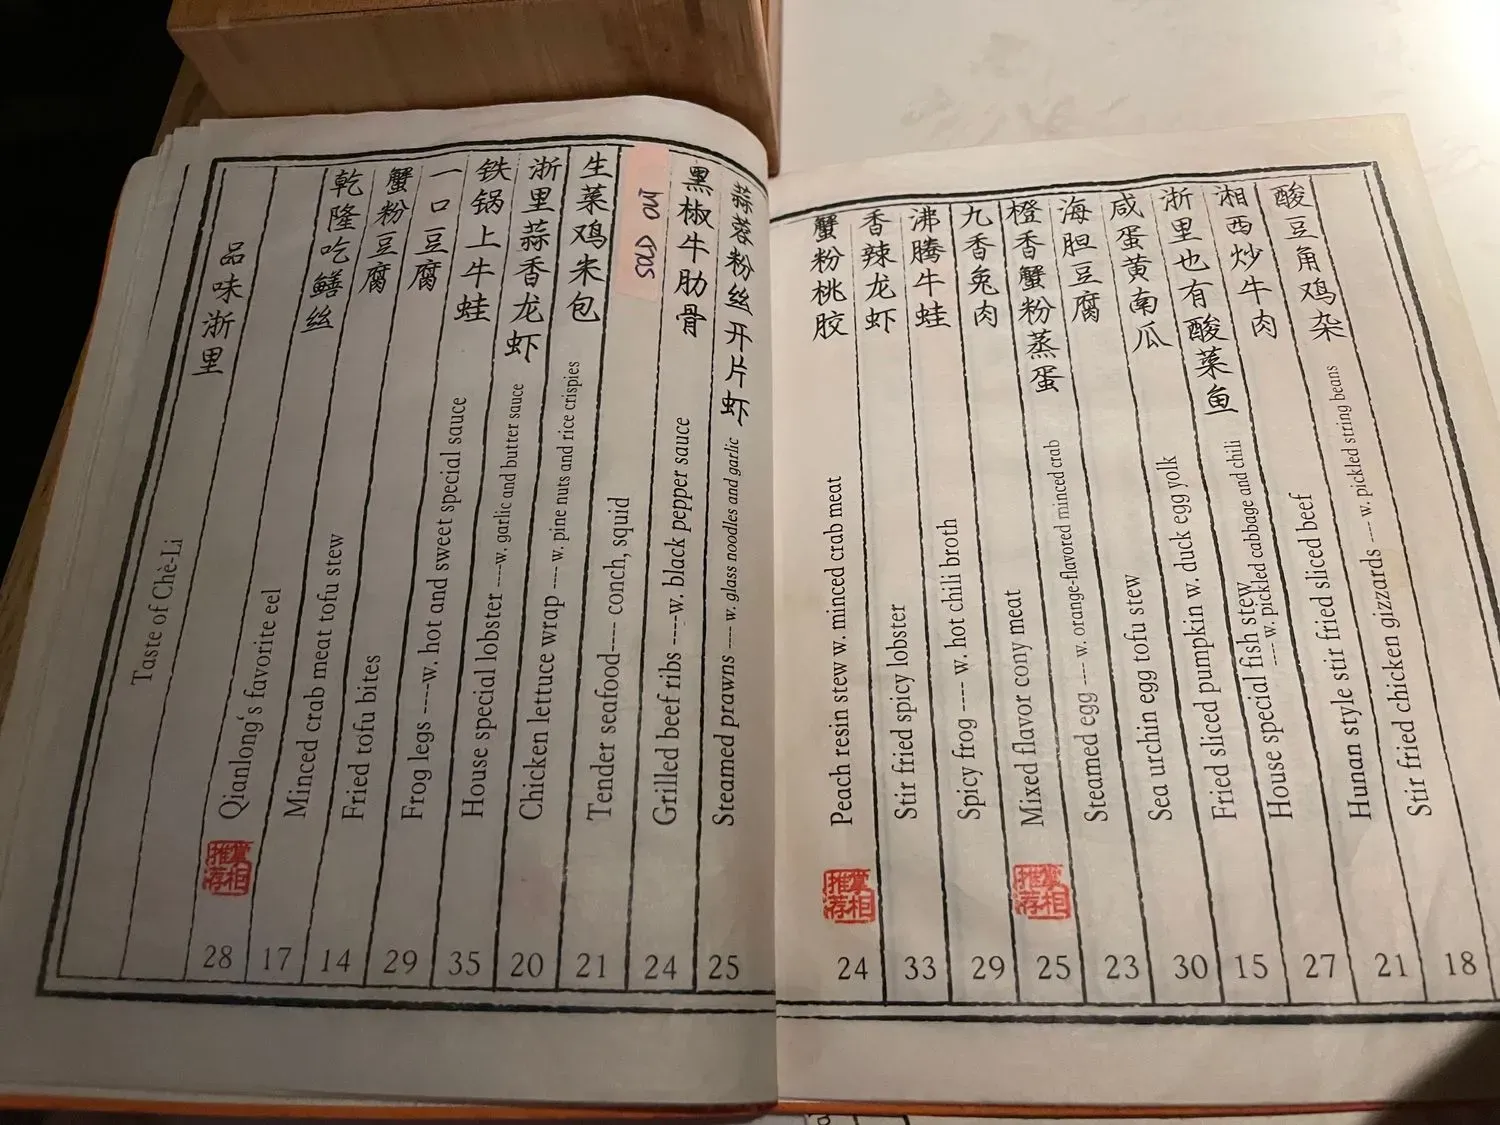 品味浙里
Taste of Chè-Li
乾隆吃鳝丝
Qianlong's favorite eel
掌柜推荐
28
蟹粉豆腐
Minced crab meat tofu stew
17
一口豆腐
Fried tofu bites
14
铁锅上牛蛙
Frog legs ----w. hot and sweet special sauce
29
浙里蒜香龙虾
House special lobster ----w. garlic and butter sauce
35
生菜鸡米包
Chicken lettuce wrap ---- w. pine nuts and rice crispies
20
Sold out
Tender seafood---- conch, squid
21
黑椒牛肋骨
Grilled beef ribs ----w. black pepper sauce
24
蒜蓉粉丝开片虾
Steamed prawns ---- w. glass noodles and garlic
25
蟹粉桃胶
Peach resin stew w. minced crab meat
掌柜推荐
24
香辣龙虾
Stir fried spicy lobster
33
沸腾牛蛙
Spicy frog ---- w. hot chili broth
29
九香兔肉
Mixed flavor cony meat
掌柜推荐
25
橙香蟹粉蒸蛋
Steamed egg ---- w. orange-flavored minced crab
23
海胆豆腐
Sea urchin egg tofu stew
30
咸蛋黄南瓜
Fried sliced pumpkin w. duck egg yolk
15
浙里也有酸菜鱼
House special fish stew
---- w. pickled cabbage and chili
27
湘西炒牛肉
Hunan style stir fried sliced beef
21
酸豆角鸡杂
Stir fried chicken gizzards ---- w. pickled string beans
18